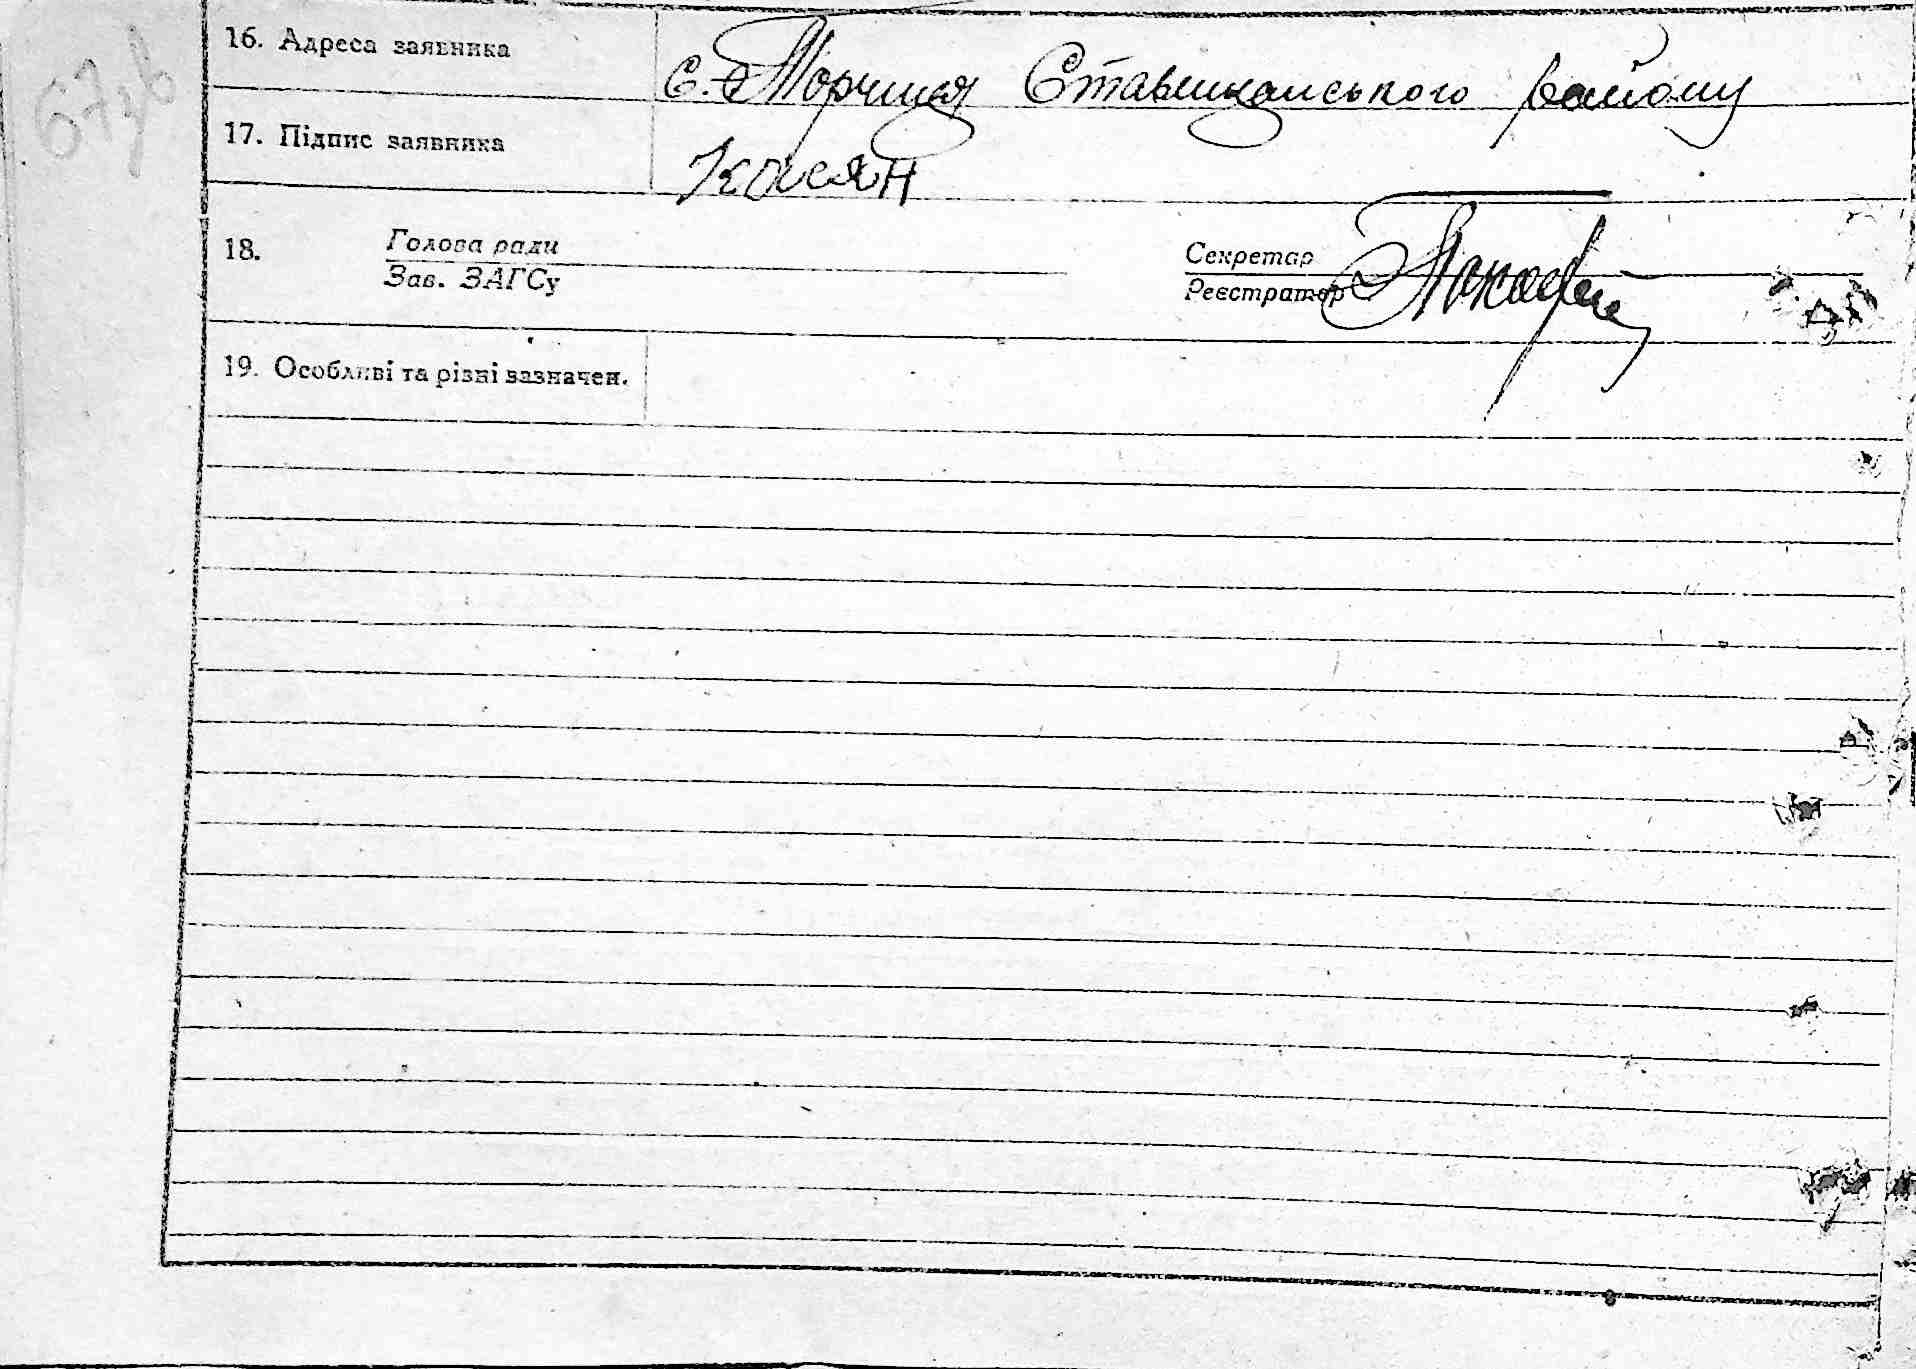 16. Адреса заявника с. Торчиця Ставищанського району
17. Підпис заявника Касян
18. Голова ради Секретар
Зав. ЗАГСу Реєстратор
19. Особливі та різні зазначен.